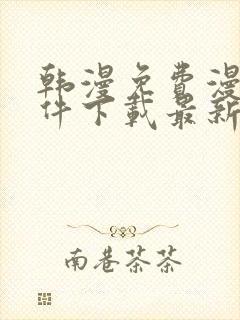 韩漫免费漫
件下载最新
南巷茶茶